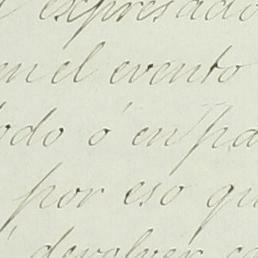 expresado
en el evento
todo ó en pa
por eso qu
devolver ca